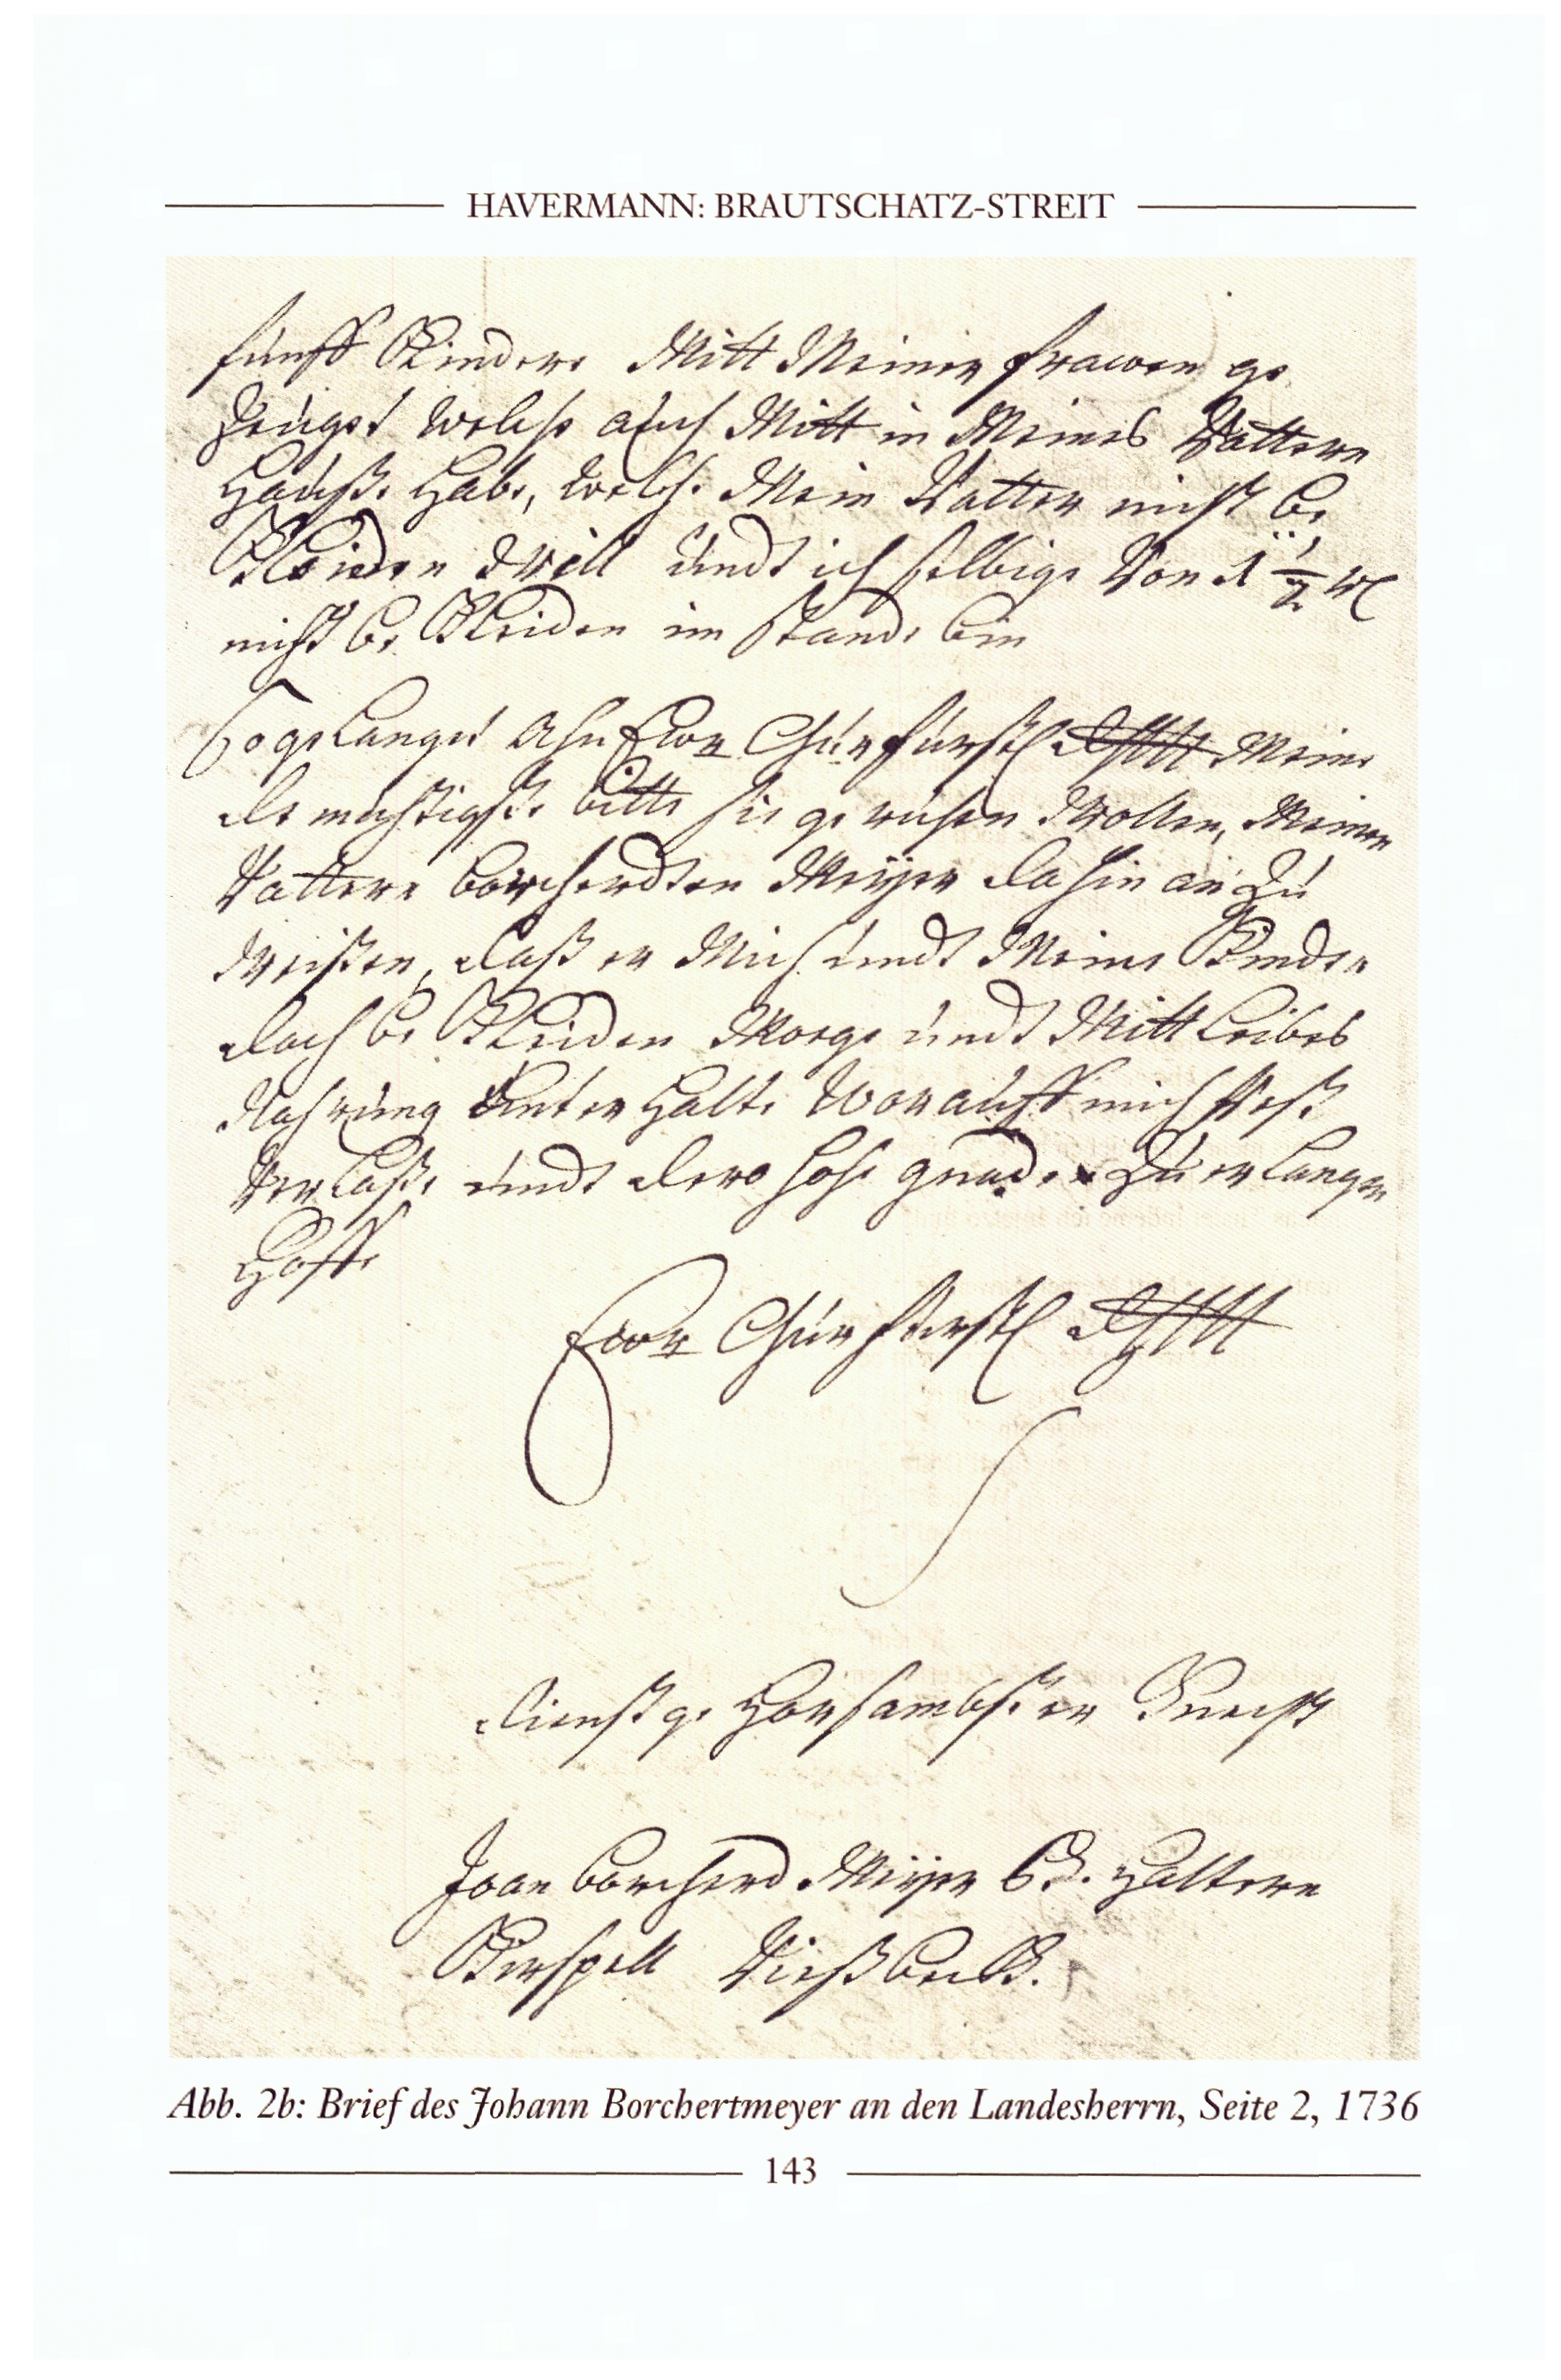 HAVERMANN: BRAUTSCHATZ-STREIT
fünff Kindere Mitt Meiner frawen ge
Zeuget welche auch Mitt in Meines Vattern
Hauße Habe, welche Mein Vatter nicht be
Kleiden will undt ich selbige Von 1 1/2
nicht be Kleiden im stande bin
So gelanget Ahn Ewr Churfürstl Meine
de müthigste bitte sie ge ruhen Wollen, Meinen
Vattern borcherdten Meÿer dahin an Zu
Weißen, daß er Mich undt Meine Kinder
doch be Kleiden Moege undt Mitt Leibes
Nahrung Unter Halte Worauff mich
Ver Laße undt dero hohe gnade Zu er Langen
Hoffe
Ewr Churfürstl
dienst ge Horsambster Knecht
Joan borcherd Meÿer Haltern
Kirspell Vießbeck.
Abb. 2b: Brief des Johann Borchertmeyer an den Landesherrn, Seite 2, 1736
143